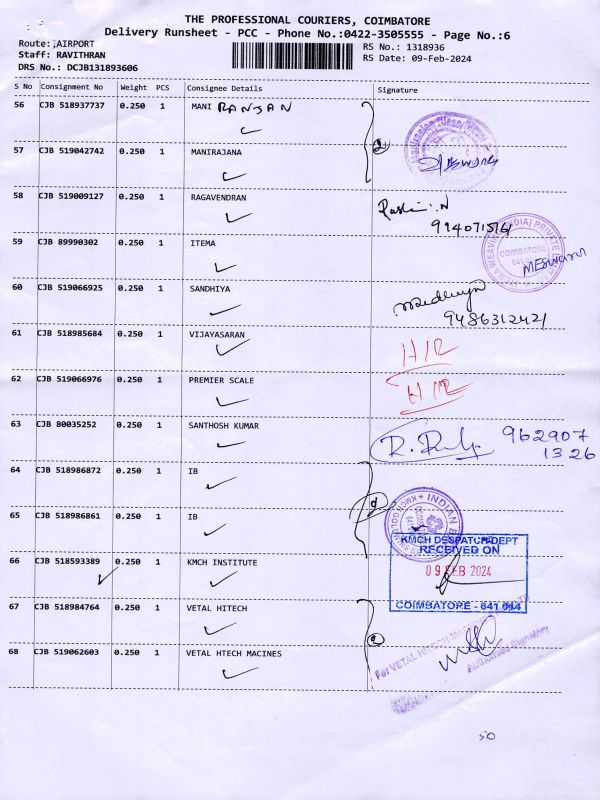 THE PROFESSIONAL COURIERS, COIMBATORE
Delivery Runsheet - PCC - Phone No.:0422-3505555 - Page No.:6
Route:,AIRPORT
Staff: RAVITHRAN
DRS No.: DCJB131893606
RS No.: 1318936
RS Date: 09-Feb-2024
S No Consignment No Weight PCS Consignee Details Signature
56 CJB 518937737 0.250 1 MANI RANJAN
57 CJB 519042742 0.250 1 MANIRAJANA
58 CJB 519009127 0.250 1 RAGAVENDRAN
59 CJB 89990302 0.250 1 ITEMA
COIMBATORE
MESwaran
60 CJB 519066925 0.250 1 SANDHIYA
9486312421
61 CJB 518985684 0.250 1 VIJAYASARAN
H/R
62 CJB 519066976 0.250 1 PREMIER SCALE
H/R
63 CJB 80035252 0.250 1 SANTHOSH KUMAR
962907
1326
64 CJB 518986872 0.250 1 IB
65 CJB 518986861 0.250 1 IB
66 CJB 518593389 0.250 1 KMCH INSTITUTE
KMCH DESPATCH DEPT
RECEIVED ON
09 FEB 2024
COIMBATORE - 641 014
67 CJB 518984764 0.250 1 VETAL HITECH
68 CJB 519062603 0.250 1 VETAL HTECH MACINES
For VETAL HITECH
Authorised Signatory
50